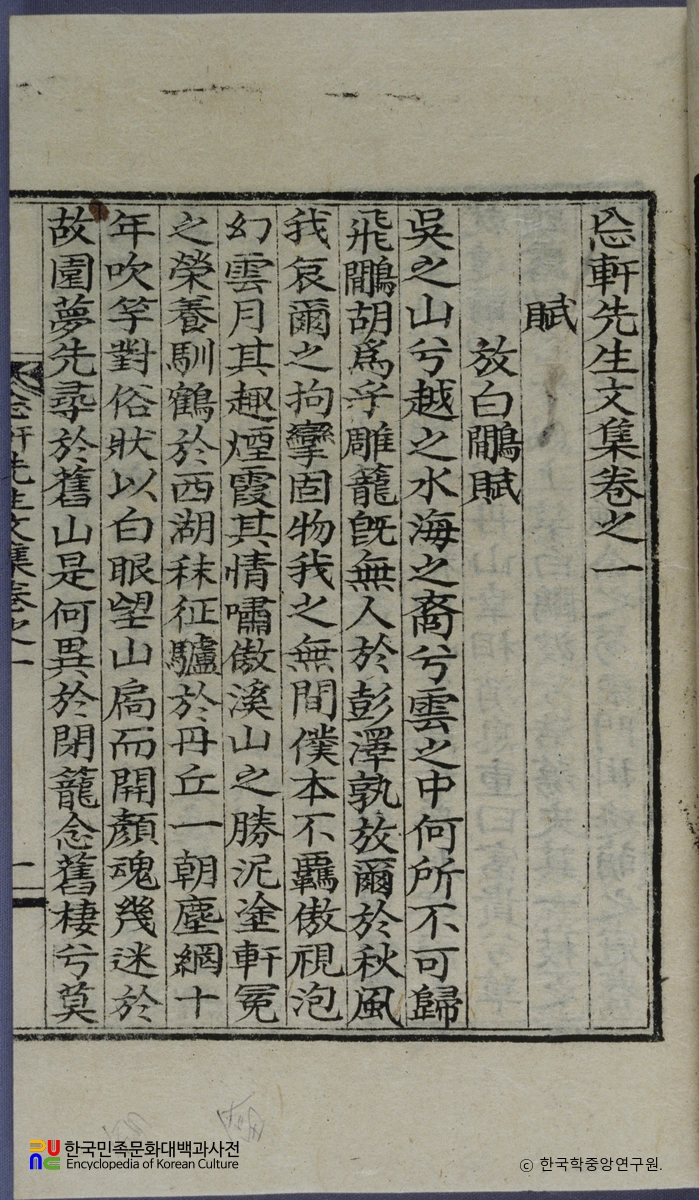 㤀軒先生文集卷之一
賦
放白鷴賦
吳之山兮越之水海之裔兮雲之中何所不可歸
飛鷴胡爲乎雕籠旣無人於彭澤孰放爾於秋風
我哀爾之拘攣固物我之無間僕本不羈傲視泡
幻雲月其趣煙霞其情嘯傲溪山之勝泥塗軒冕
之榮養馴鶴於西湖秣征驢於丹丘一朝塵網十
年吹竽對俗狀以白眼望山扃而開顏魂幾迷於
故園夢先尋於舊山是何異於閉籠念舊棲兮莫
㤀軒先生文集卷之一
한국민족문화대백과사전
Encyclopedia of Korean Culture
© 한국학중앙연구원.